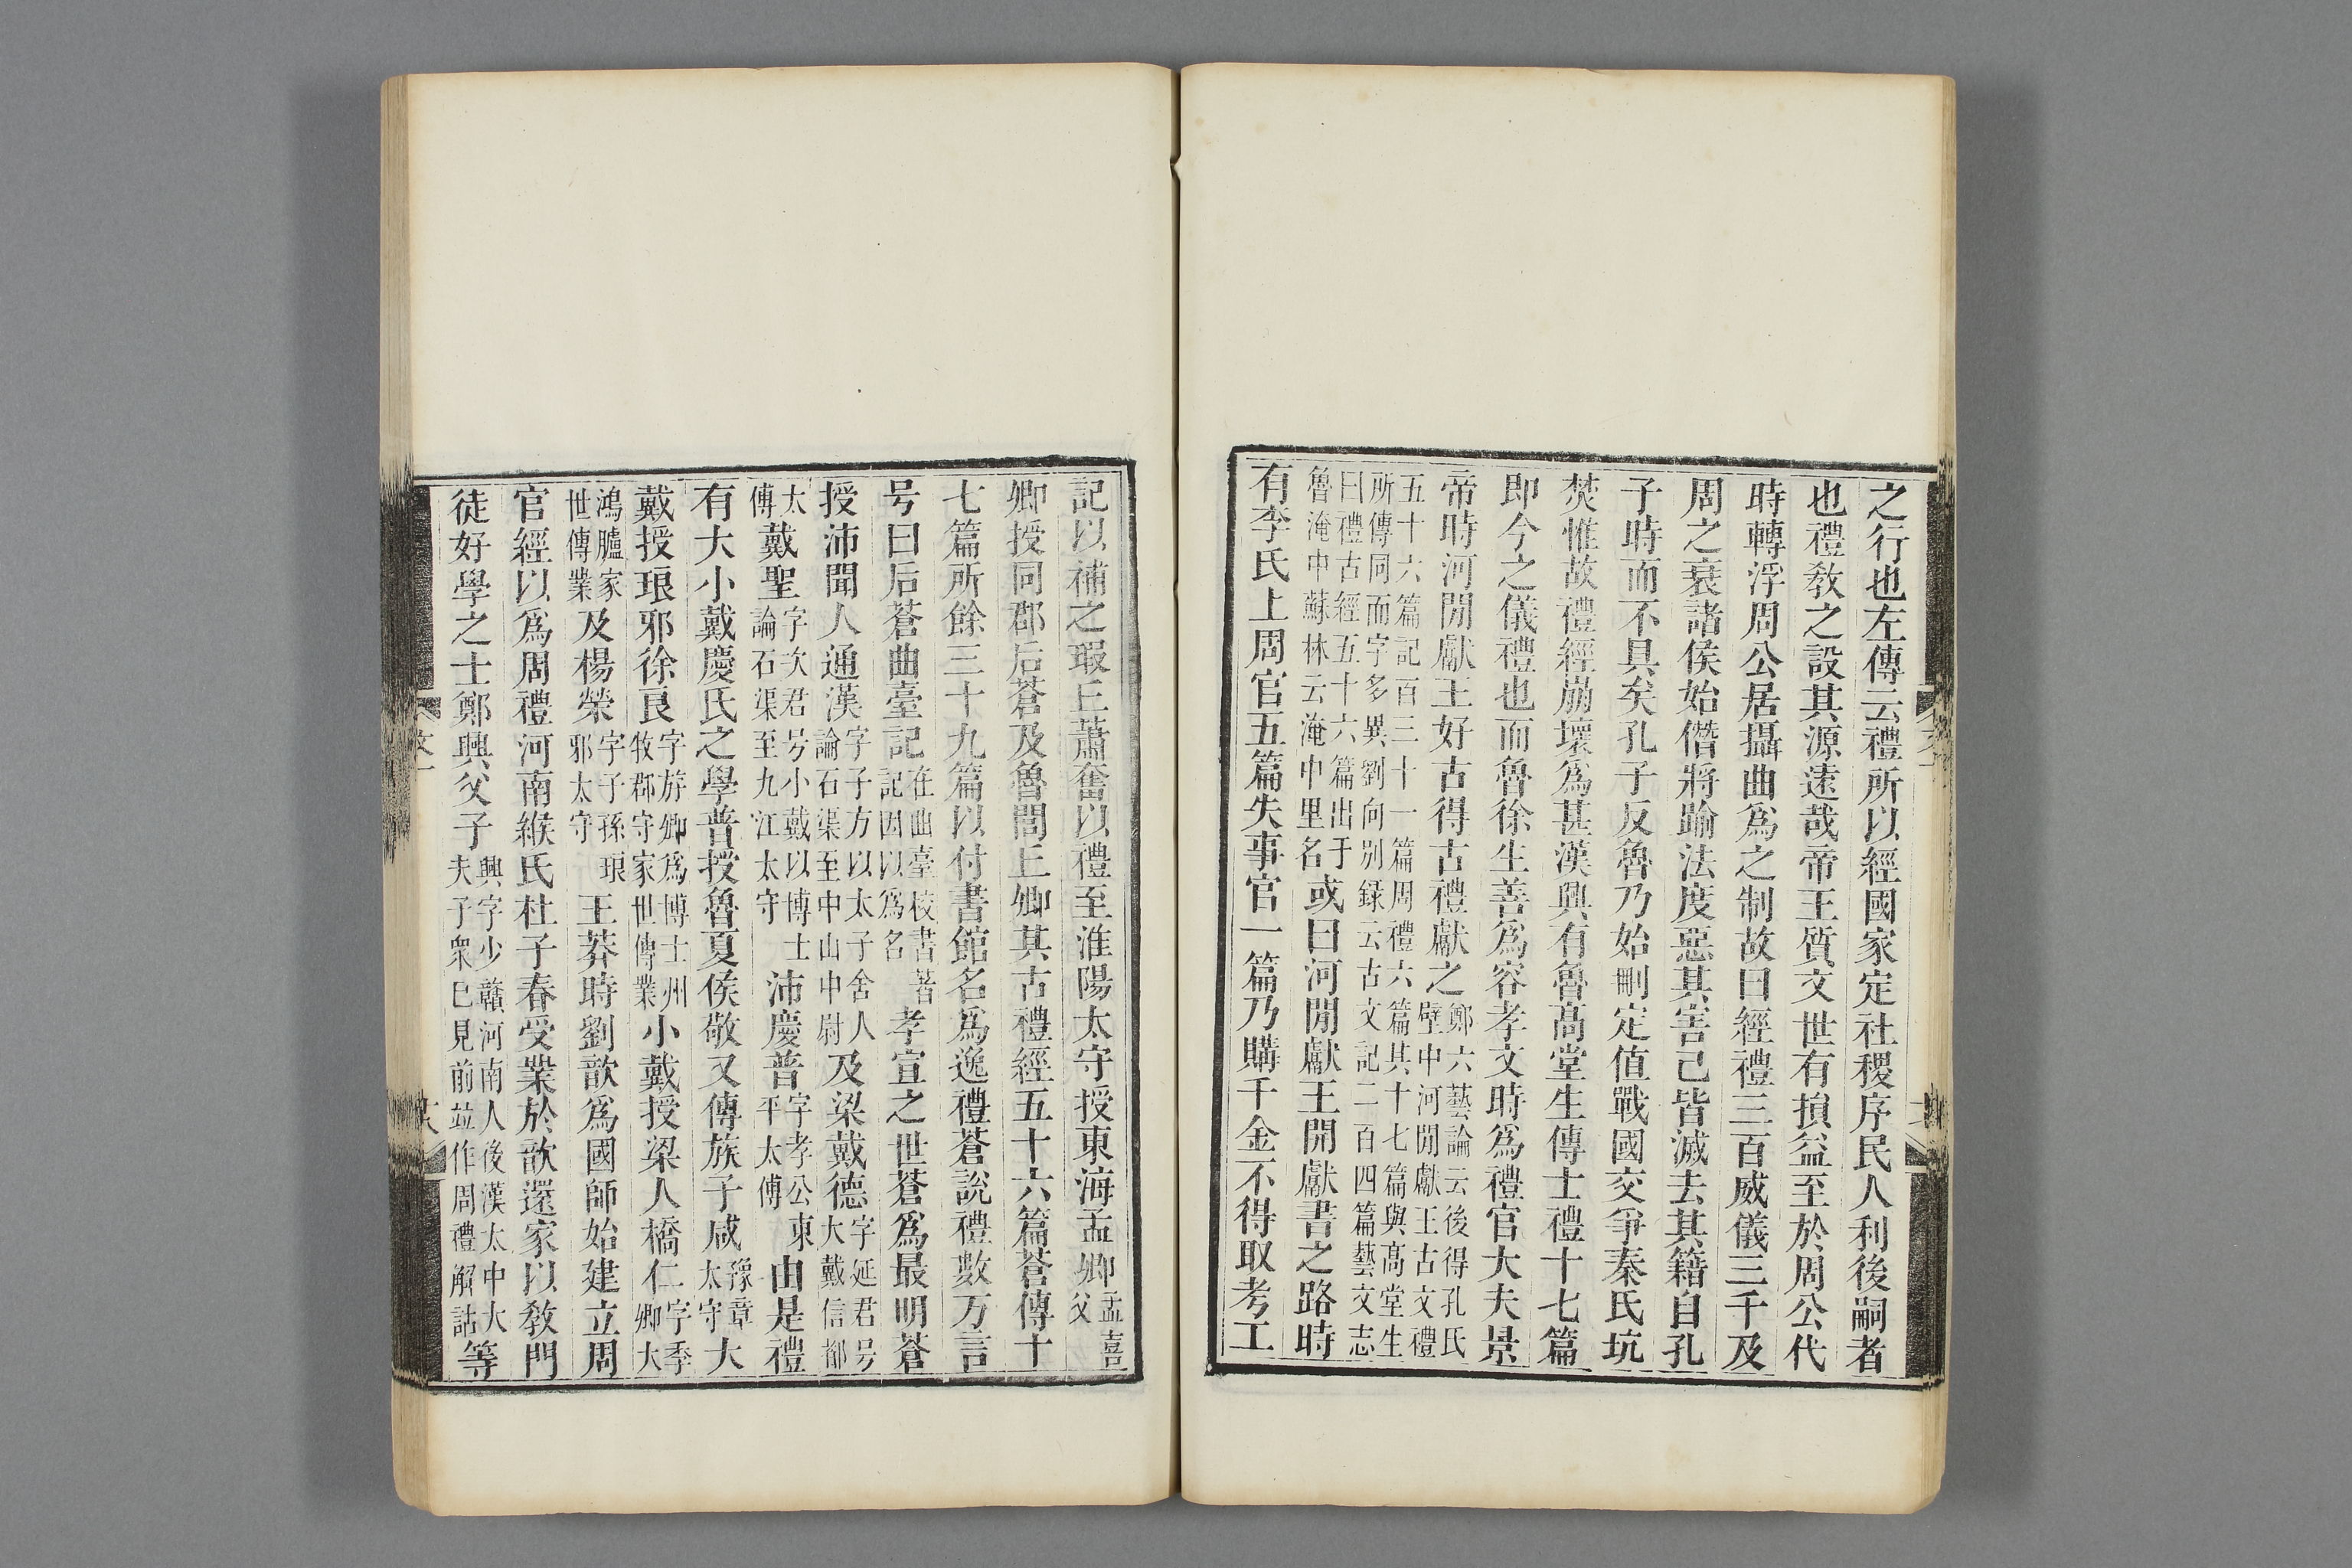 之行也左傳云禮所以經國家定社稷序民人利後嗣者
也禮教之設其源遠哉帝王質文世有損益至於周公代
時轉浮周公居攝曲爲之制故曰經禮三百威儀三千及
周之衰諸侯始僭將踰法度惡其害己皆滅去其籍自孔
子時而不具矣孔子反魯乃始刪定值戰國交爭秦氏坑
焚惟故禮經崩壞爲甚漢興有魯髙堂生傳士禮十七篇
即今之儀禮也而魯徐生善爲容孝文時爲禮官大夫景
帝時河閒獻王好古得古禮獻之鄭六藝論云後得孔氏壁中河閒獻王古文禮
五十六篇記百三十一篇周禮六篇其十七篇與髙堂生所傳同而字多異劉向别録云古文記二百四篇藝文志
曰禮古經五十六篇出于魯淹中蘇林云淹中里名或曰河閒獻王開獻書之路時
有李氏上周官五篇失事官一篇乃購千金不得取考工
記以補之瑕丘蕭奮以禮至淮陽太守授東海孟卿孟喜父
卿授同郡后蒼及魯閭丘卿其古禮經五十六篇蒼傳十
七篇所餘三十九篇以付書館名爲逸禮蒼說禮數万言
号曰后蒼曲臺記在曲臺校書著記因以爲名孝宣之世蒼爲最明蒼
授沛聞人通漢字子方以太子舍人論石渠至中山中尉及梁戴德字延君号大戴信都
太傅戴聖字次君号小戴以博士論石渠至九江太守沛慶普字孝公東平太傅由是禮
有大小戴慶氏之學普授魯夏侯敬又傳族子咸豫章太守大
戴授琅邪徐良字斿卿爲博士州牧郡守家世傳業小戴授梁人橋仁字季卿大
鴻臚家世傳業及楊榮字子孫琅邪太守王莽時劉歆爲國師始建立周
官經以爲周禮河南緱氏杜子春受業於歆還家以教門
徒好學之士鄭興父子興字少贛河南人後漢太中大夫子衆已見前竝作周禮解詁等